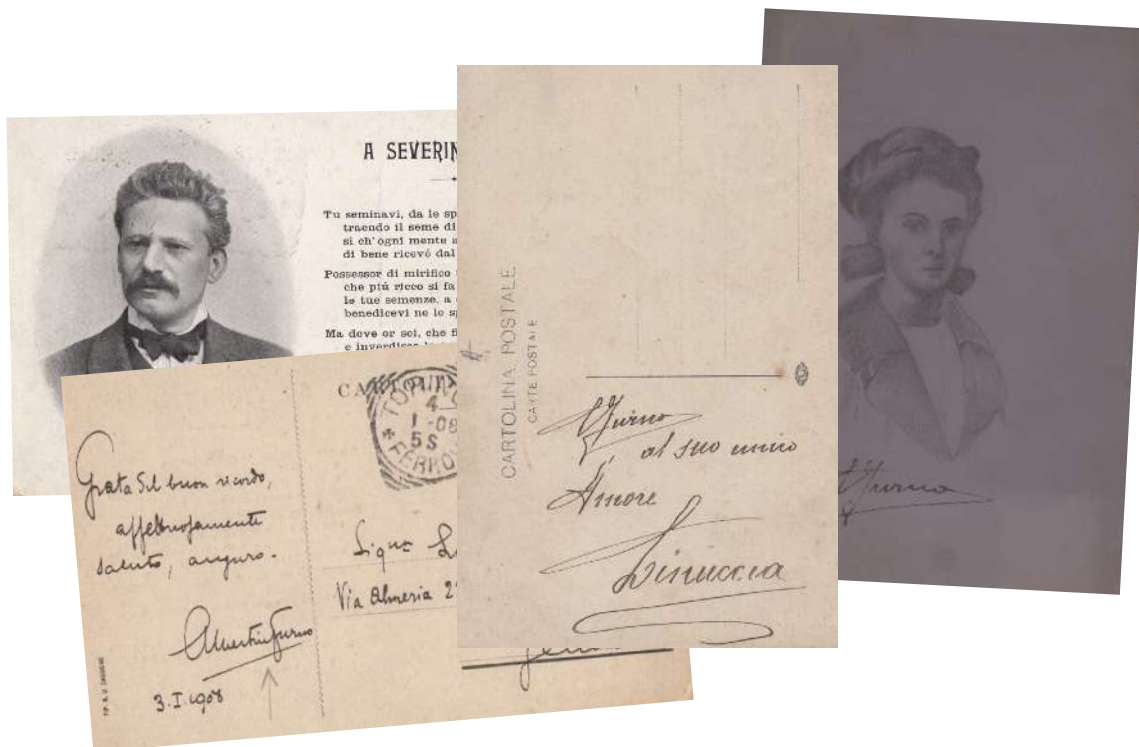 A SEVERIN
Tu seminavi, da le sp
traendo il seme di
si ch' ogni mente a
di bene ricevé dal
Possessor di mirifico
che piú ricco si fa
le tue semenze, a
benedicevi ne le sp
Ma dove or sei, che fi
e inverdisce
Grata del buon ricordo,
affettuosamente
saluto, auguro.
Albertina Furno
3.I.1908
CARTOLINA
TORINO
4
1-08
5S
FERROV
Sigra
Via Almeria 2
CARTOLINA POSTALE
CARTE POSTALE
AFurno
al suo unico
Amore
Linuccia
AFurno